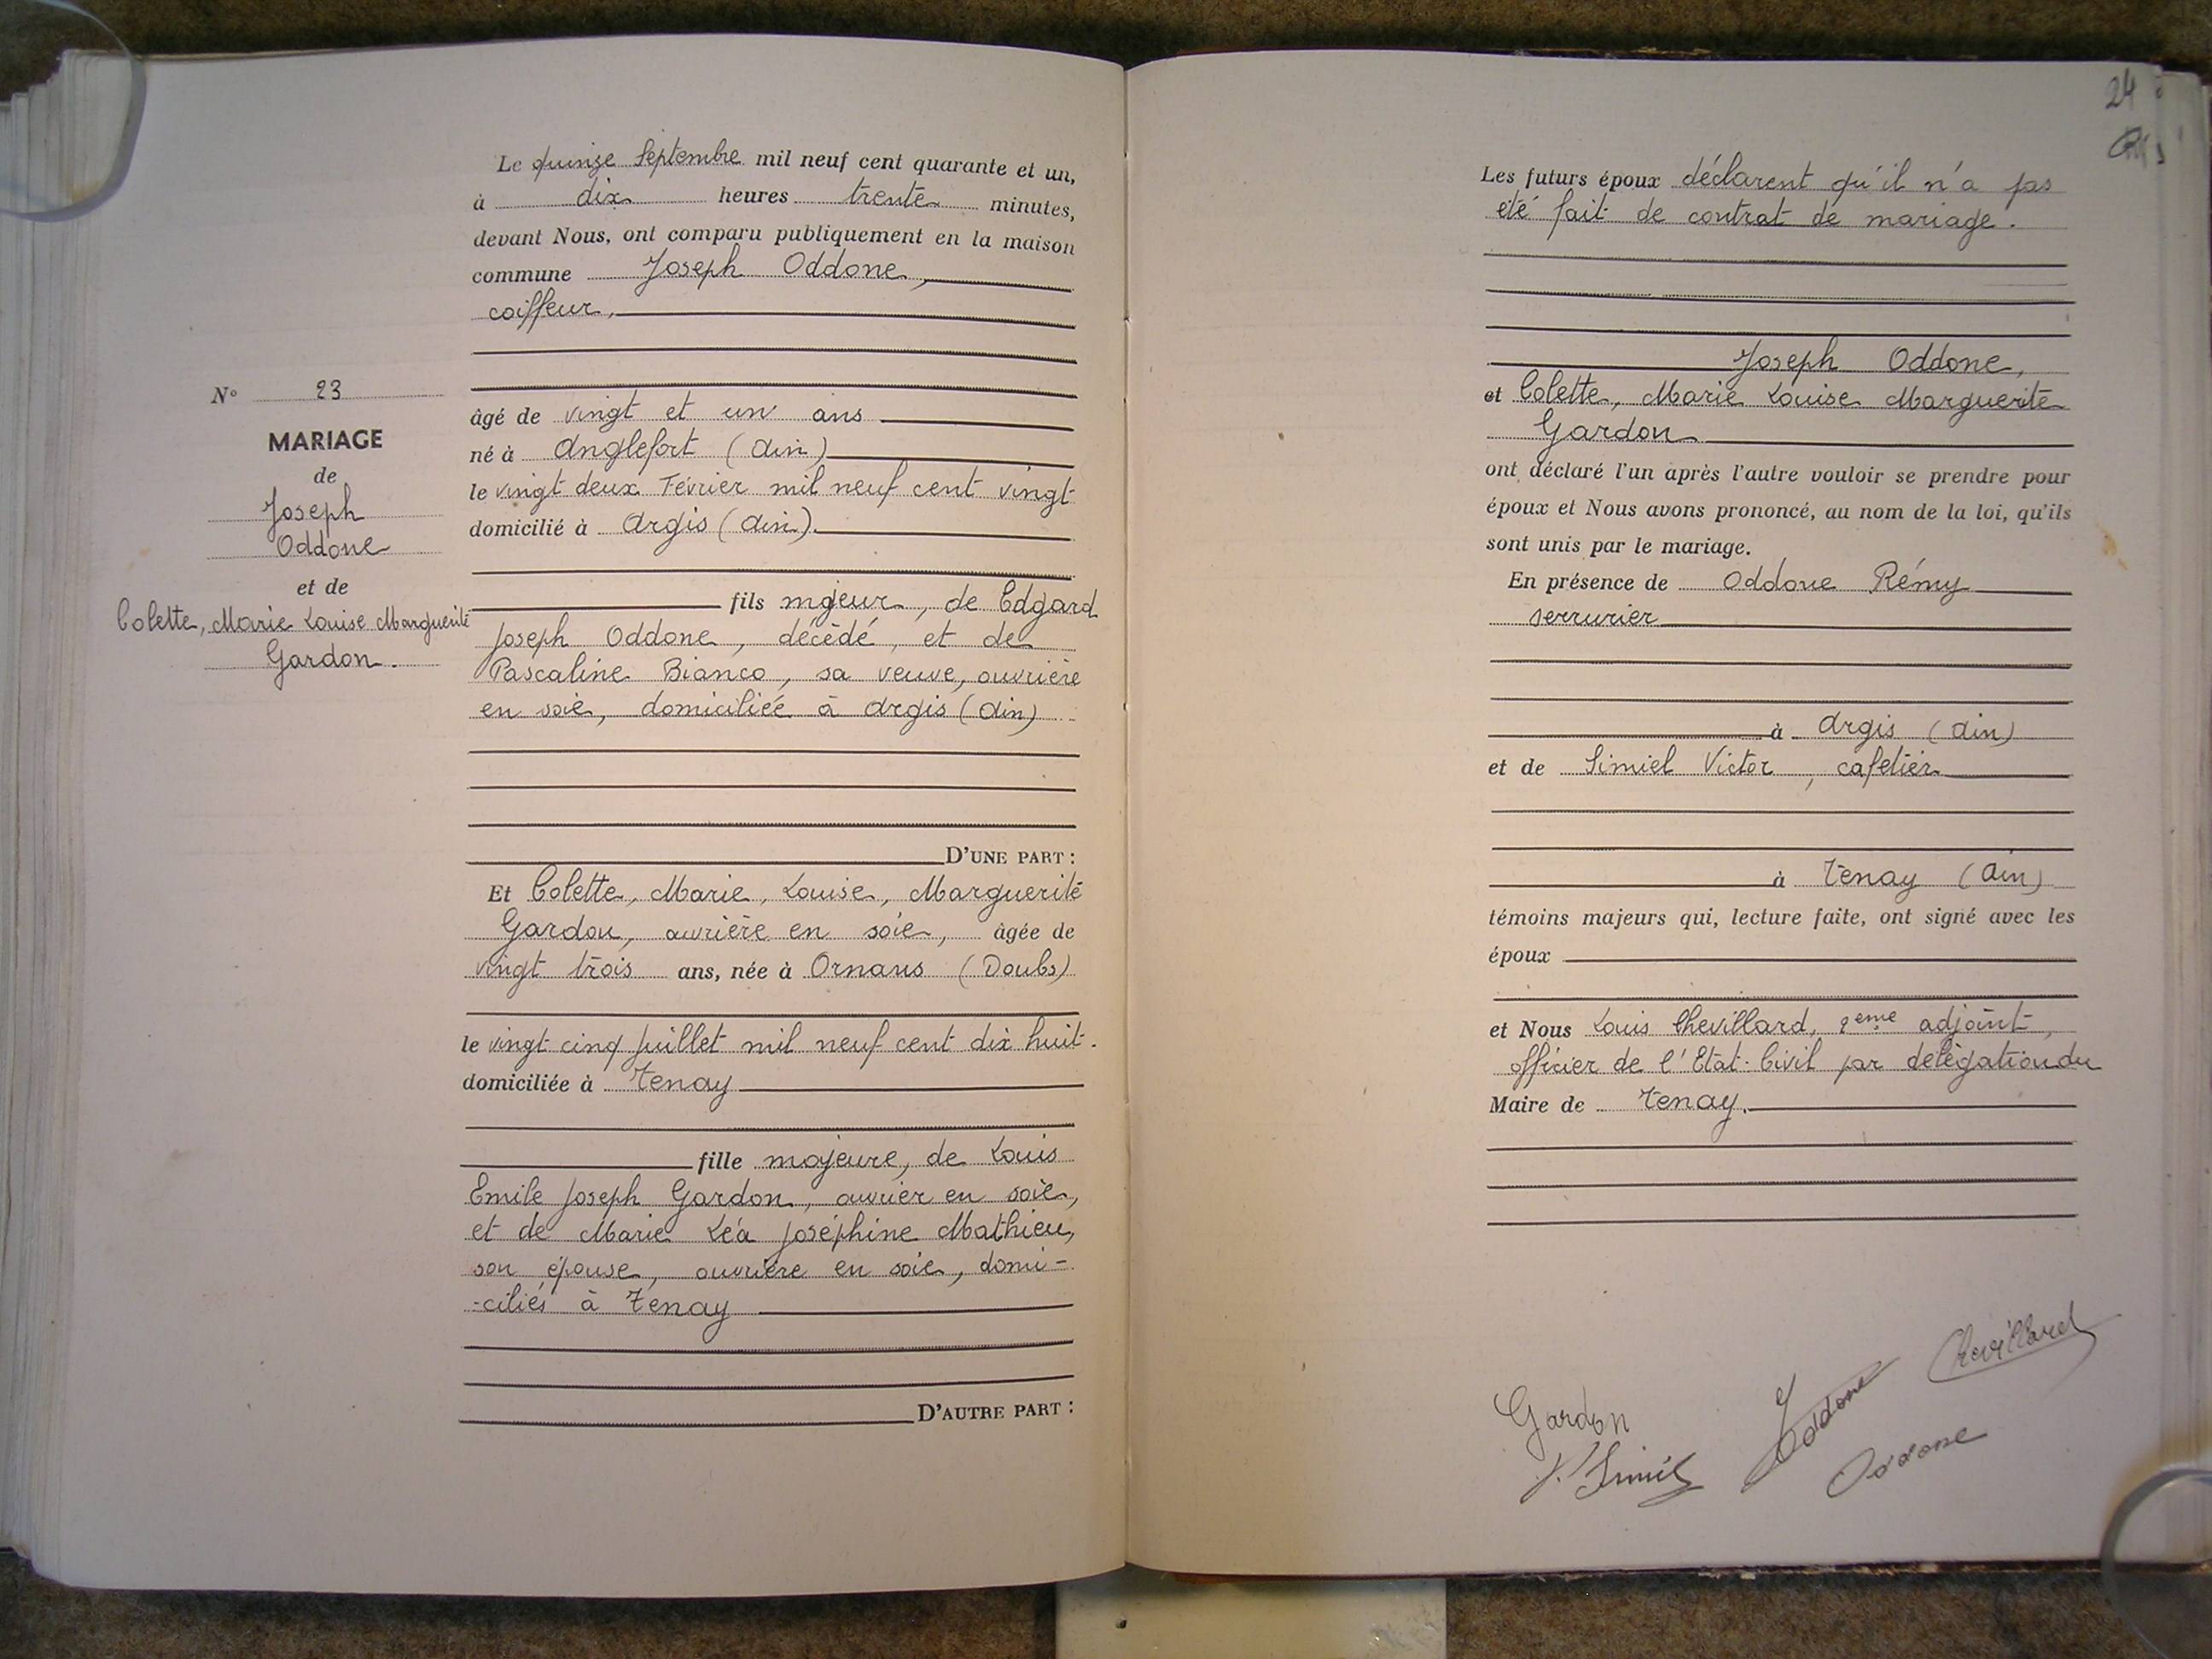 Le quinze Septembre mil neuf cent quarante et un,
à dix heures trente minutes,
devant Nous, ont comparu publiquement en la maison
commune Joseph Oddone,
coiffeur,
N° 23
MARIAGE
de
Joseph
Oddone
et de
Colette, Marie Louise Marguerite
Gardon.
âgé de vingt et un ans
né à Anglefort (Ain)
le vingt deux Février mil neuf cent vingt
domicilié à Argis (Ain).
fils majeur, de Edgard
Joseph Oddone, décédé, et de
Pascaline Bianco, sa veuve, ouvrière
en soie, domiciliée à Argis (Ain)
D'UNE PART :
Et Colette, Marie, Louise, Marguerite
Gardon, ouvrière en soie, âgée de
vingt trois ans, née à Ornans (Doubs)
le vingt cinq Juillet mil neuf cent dix huit.
domiciliée à Tenay
fille majeure, de Louis
Emile Joseph Gardon, ouvrier en soie,
et de Marie Léa Joséphine Mathieu,
son épouse, ouvrière en soie, domi-
-ciliés à Tenay
D'AUTRE PART :
24
Les futurs époux déclarent qu'il n'a pas
été fait de contrat de mariage.
Joseph Oddone,
et Colette, Marie Louise Marguerite
Gardon
ont déclaré l'un après l'autre vouloir se prendre pour
époux et Nous avons prononcé, au nom de la loi, qu'ils
sont unis par le mariage.
En présence de Oddone Rémy
serrurier
à Argis (Ain)
et de Simiel Victor, cafetier
à Tenay (Ain)
témoins majeurs qui, lecture faite, ont signé avec les
époux
et Nous Louis Chevillard, 2ème adjoint,
officier de l'Etat-Civil par délégation du
Maire de Tenay.
Chevillard
Gardon
Joddone
V. Simiel
Oddone